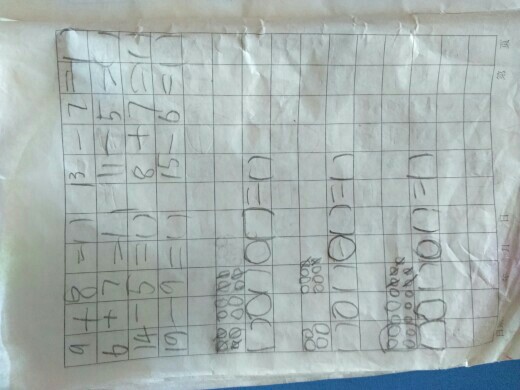 9+8=() 13-7=()
6+7=() 11-5=()
14-5=() 8+7=()
19-9=() 15-6=()
()○()○()=()
()○()○()=()
()○()○()=()